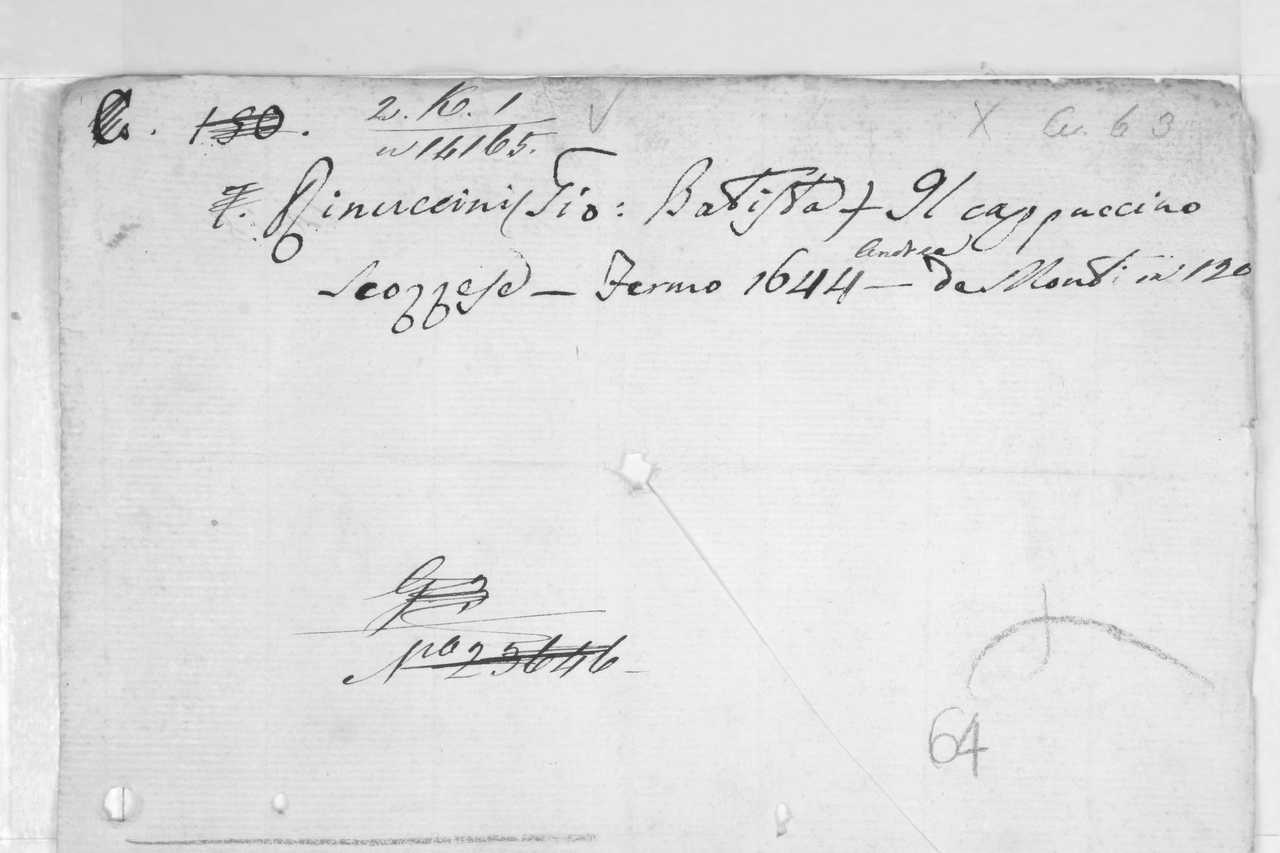 C. 180. 2. K. 1 X Cu. 63
n 14165.
F. Rinuccini (Gio: Batista) Il cappuccino
Scozzese — Fermo 1644 — Andrea de Monti in 12º
G 2
Nº 23646
64